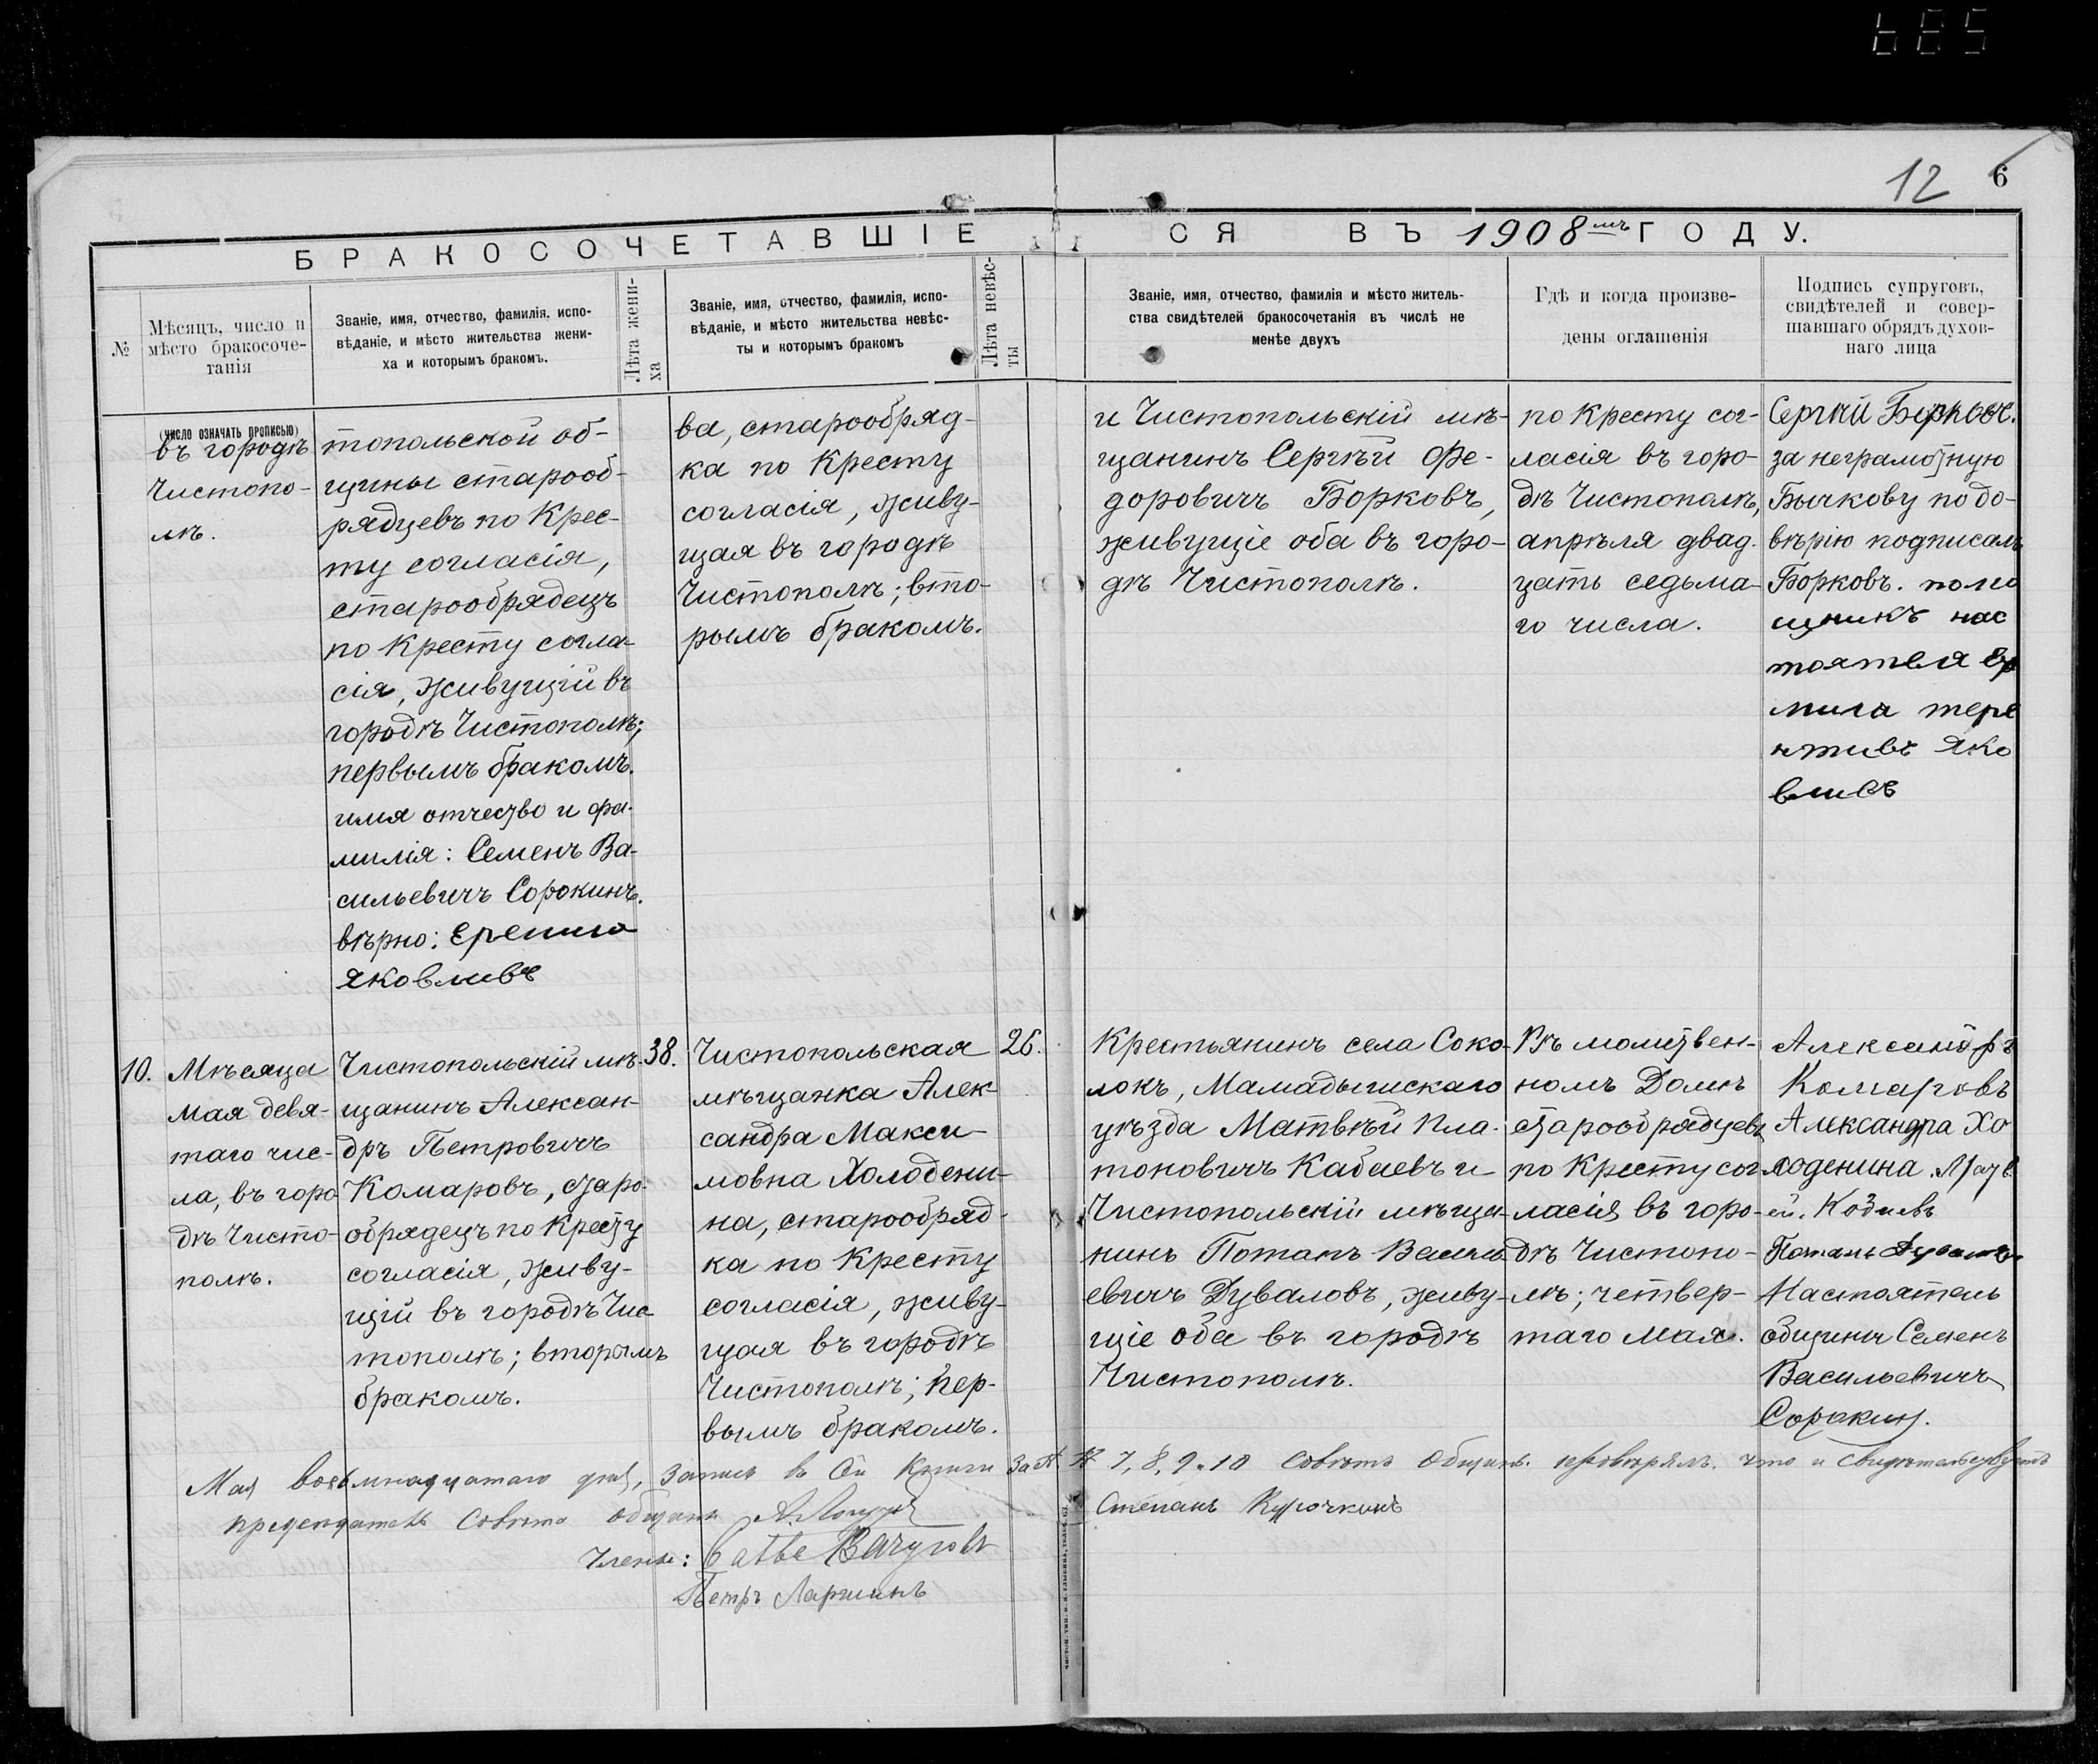 12 6
БРАКОСОЧЕТАВШІЕСЯ ВЪ 1908мъ ГОДУ.
№
Мѣсяцъ, число и
мѣсто бракосоче-
танія
(число означать прописью)
Званіе, имя, отчество, фамилія, испо-
вѣданіе, и мѣсто жительства жени-
ха и которымъ бракомъ.
Лѣта жени-
ха
Званіе, имя, отчество, фамилія, испо-
вѣданіе, и мѣсто жительства невѣс-
ты и которымъ бракомъ
Лѣта невѣс-
ты
Званіе, имя, отчество, фамилія и мѣсто житель-
ства свидѣтелей бракосочетанія въ числѣ не
менѣе двухъ
Гдѣ и когда произве-
дены оглашенія
Подпись супруговъ,
свидѣтелей и совер-
шавшаго обрядъ духов-
наго лица
въ городѣ
Чистопо-
лѣ.
топольской об-
щины старооб-
рядцевъ по Крес-
ту согласія,
старообрядецъ
по Кресту согла-
сія, живущій въ
городѣ Чистополѣ;
первымъ бракомъ.
имя отчество и фа-
милія: Семенъ Ва-
сильевичъ Сорокинъ.
вѣрно: Еремила
Яковливъ
ва, старообряд-
ка по Кресту
согласія, живу-
щая въ городѣ
Чистополѣ; вто-
рымъ бракомъ.
и Чистопольскій мѣ-
щанинъ Сергѣй Фе-
доровичъ Борковъ,
живущіе оба въ горо-
дѣ Чистополѣ.
по Кресту сог-
ласія въ горо-
дѣ Чистополѣ,
апрѣля двад-
цать седьма-
го числа.
Сергѣй Борковъ.
за неграмотную
Бычкову по до-
вѣрію подписалъ
Борковъ. помо
щникъ нас
тоятеля Ер
мила тере
нтивъ Яко
вливъ
10.
Мѣсяца
мая девя-
таго чис-
ла, въ горо
дѣ Чисто-
полѣ.
Чистопольскій мѣ-
щанинъ Алексан-
дръ Петровичъ
Комаровъ, старо-
обрядецъ по Кресту
согласія, живу-
щій въ городѣ Чис
тополѣ; вторымъ
бракомъ.
38.
Чистопольская
мѣщанка Алек-
сандра Макси-
мовна Холодени-
на, старообряд-
ка по Кресту
согласія, живу-
щая въ городѣ
Чистополѣ; пер-
вымъ бракомъ.
26.
Крестьянинъ села Соко-
локъ, Мамадышскаго
уѣзда Матвѣй Пла-
тоновичъ Кабаевъ и
Чистопольскій мѣща-
нинъ Потапъ Василь-
евичъ Дуваловъ, живу-
щіе оба въ городѣ
Чистополѣ.
Въ молитвен-
номъ Домѣ
старообрядцевъ
по Кресту сог-
ласія въ горо-
дѣ Чистопо-
лѣ; четвер-
таго мая.
Александръ
Комаровъ
Александра Хо
лоденина.
Потапъ
Настоятель
общины Семенъ
Васильевичъ
Сорокин.
Мая восьмнадцатаго дня, запись въ сей книги за № № 7, 8, 9 и 10 Совѣтъ Общины провѣрялъ. что и свидѣтельствуетъ
председатель Совѣта общины
Степанъ Курочкинъ
Члены:
Петръ Ларшинъ